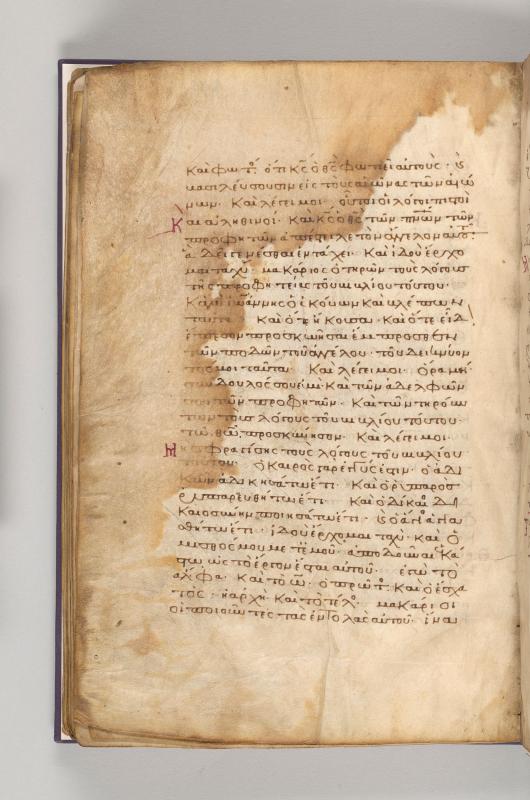 Καὶ φωτ ὅτι κς ὁ θς φωτιεῖ αὐτούς
βασιλεύσουσιν εἰς τοὺς αἰῶνας τῶν αἰώ
νων. Καὶ λέγει μοι οὗτοι οἱ λόγοι πιστοὶ
Καὶ ἀληθινοί. Καὶ κς ὁ θς τῶν πνων τῶν
προφητῶν ἀπέστειλε τὸν ἄγγελον αὐτοῦ
ἃ δεῖ γενέσθαι ἐν τάχει. Καὶ ἰδοὺ ἔρχο
μαι ταχύ. μακάριος ὁ τηρῶν τοὺς λόγους
τῆς προφητείας τοῦ βιβλίου τούτου.
Καγὼ ἰωάννης ὁ ἀκούων Καὶ βλέπων
ταῦτα Καὶ ὅτε ἤκουσα. Καὶ ὅτε εἶδ
ἔπεσον προσκυνῆσαι ἔμπροσθεν
τῶν ποδῶν τοῦ ἀγγέλου. τοῦ δεικνύον
τός μοι ταῦτα. Καὶ λέγει μοι. ὅρα μή
σύνδουλός σου εἰμι. Καὶ τῶν ἀδελφῶν
σου τῶν προφητῶν. Καὶ τῶν τηρούν
των τοὺς λόγους τοῦ βιβλίου τούτου.
τῷ θῷ προσκύνησον. Καὶ λέγει μοι.
Μὴ σφραγίσης τοὺς λόγους τοῦ βιβλίου
τούτου. ὁ Καιρὸς γὰρ ἐγγύς ἐστιν. ὁ ἀδι
Κῶν ἀδικησάτω ἔτι. Καὶ ὁ ῥυπαρὸς
ῥυπαρευθήτω ἔτι Καὶ ὁ δίκαι δι
Καιοσύνην ποιησάτω ἔτι. ὁ ἅγι ἁγια
σθήτω ἔτι. ἰδοὺ ἔρχομαι ταχύ. Καὶ ὁ
μισθός μου μετ' ἐμοῦ. ἀποδοῦναι ἑκά
στω ὡς τὸ ἔργον ἔσται αὐτοῦ. ἐγὼ τὸ
ἄλφα. Καὶ τὸ ω. ὁ πρῶτ. Καὶ ὁ ἔσχα
τος. ἡ ἀρχὴ Καὶ τὸ τέλ. μακάριοι
οἱ ποιοῦντες τὰς ἐντολὰς αὐτοῦ. ἵνα